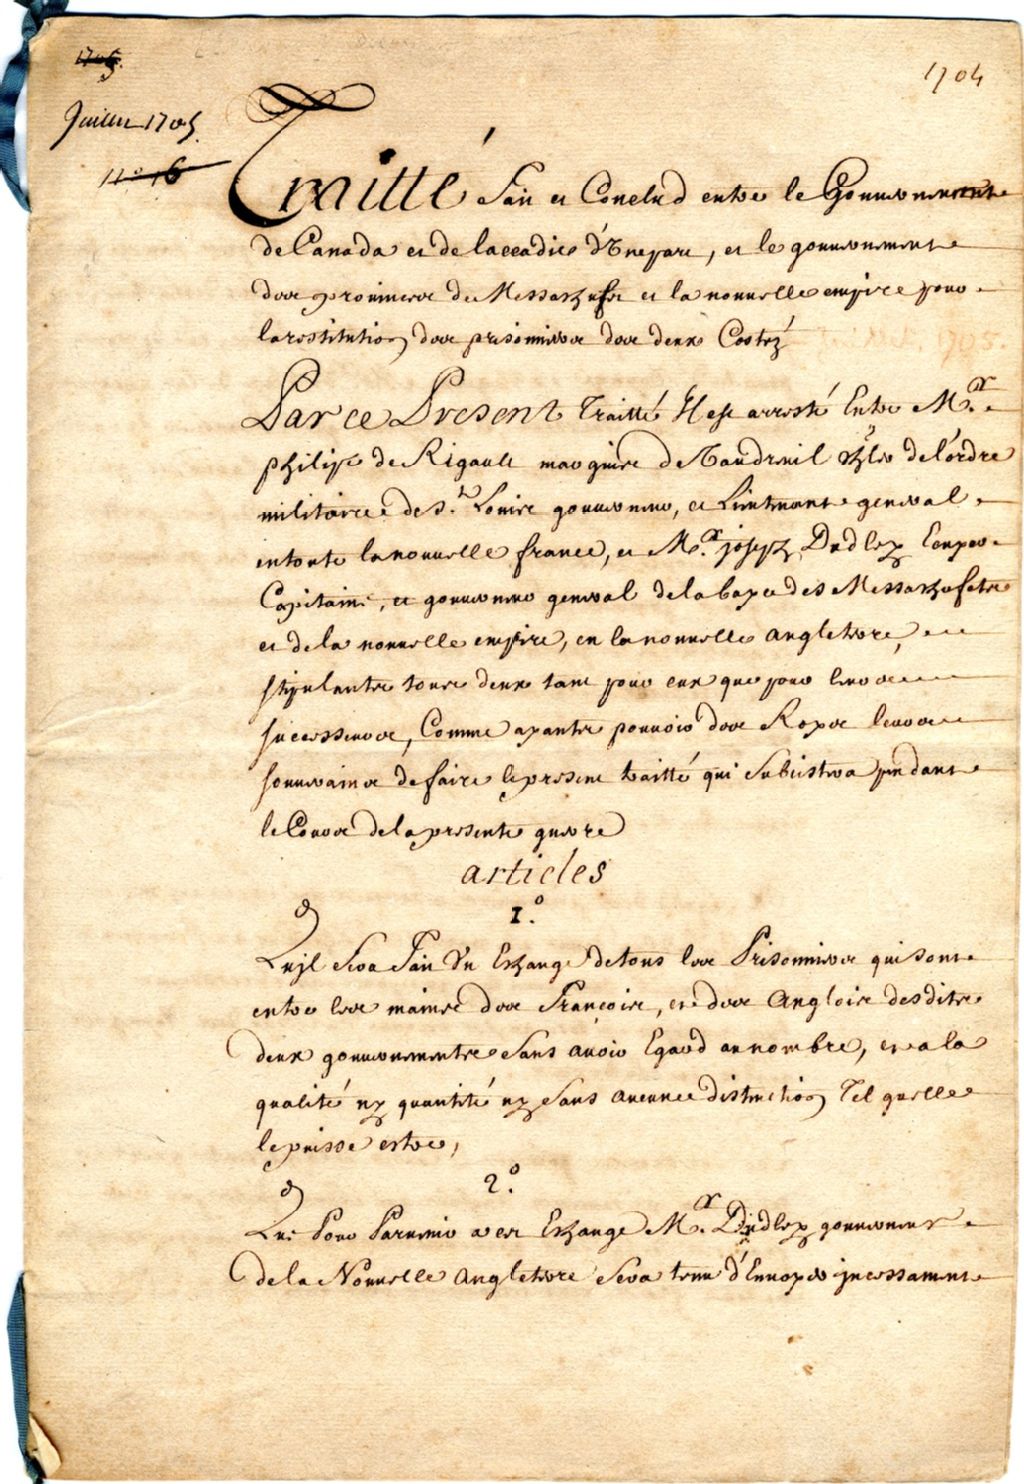 1705.
1704
Juillet 1705.
n.° 16
Traitté Fait et Conclud entre le Gouvernement
de Canada et de laccadie d'Une part, et le gouvernement
des provinces de Messachusets et la nouvelle empire pour
la restitution des prisonniers des deux Costez
Par ce Present Traitté Il est arresté Entre M.r
philipe de Rigault marquise de Vaudreuil chler de l'ordre
militaire de S.t Louise gouverneur, et Lieutenant general
en toute la nouvelle france, et M.r joseph Dudley Ecuyer
Capitaine, et gouverneur general de la baye des Messachusets
et de la nouvelle empire, en la nouvelle angleterre,
stipulants tous deux tant pour eux que pour leurs
successeurs, Comme ayants pouvoir des Roys leurs
souverains de faire le present traitté qui Subsistera pendant
le Cours de la presente guerre
articles
1.o
Quil Sera Fait Un Eschange de tous les Prisonniers qui sont
entre les mains des François, et des Anglois desdits
deux gouvernements Sans avoir Egard au nombre, et a la
qualité ny quantité ny Sans aucune distinction Tel quelle
le puisse estre,
2.o
Que Pour Parvenir a cet Eschange M.r Dudley gouverneur
de la Nouvelle Angleterre Sera tenu d'Envoyer incessament